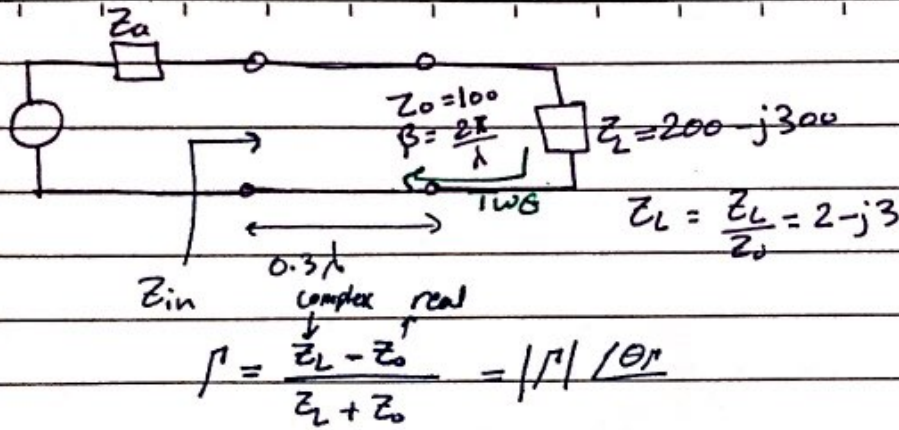 Za
Z₀ = 100
β = 2π/λ
Z_L = 200 - j300
TWG
z_L = Z_L/Z₀ = 2 - j3
0.3λ
Zin
complex real
Γ = (Z_L - Z₀)/(Z_L + Z₀) = |Γ| ∠θr